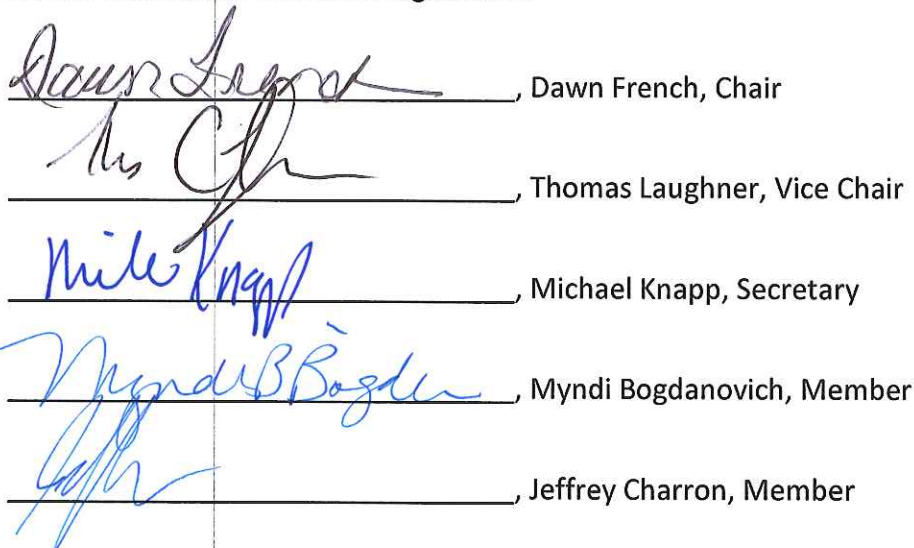 Dawn French, Dawn French, Chair
, Thomas Laughner, Vice Chair
Mike Knapp, Michael Knapp, Secretary
Myndi B Bogdan, Myndi Bogdanovich, Member
, Jeffrey Charron, Member